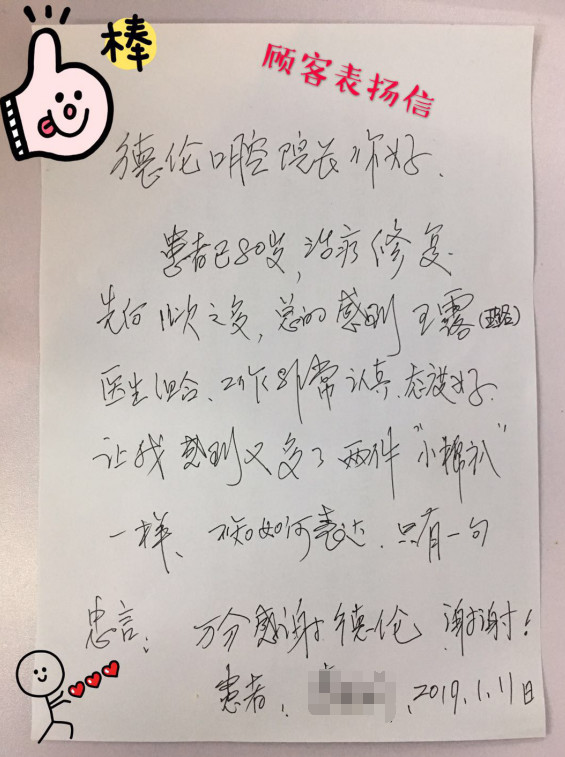 棒
顾客表扬信
德伦口腔院长你好.
患者已80岁,治疗修复.
先后 次之多,总的感到王露(璐)
医生组合、工作非常认真、态度好.
让我感到又多了两件"小棉袄"
一样、不知如何表达.只有一句
忠言: 万分感谢德伦 谢谢!
患者: .2019.1.11日